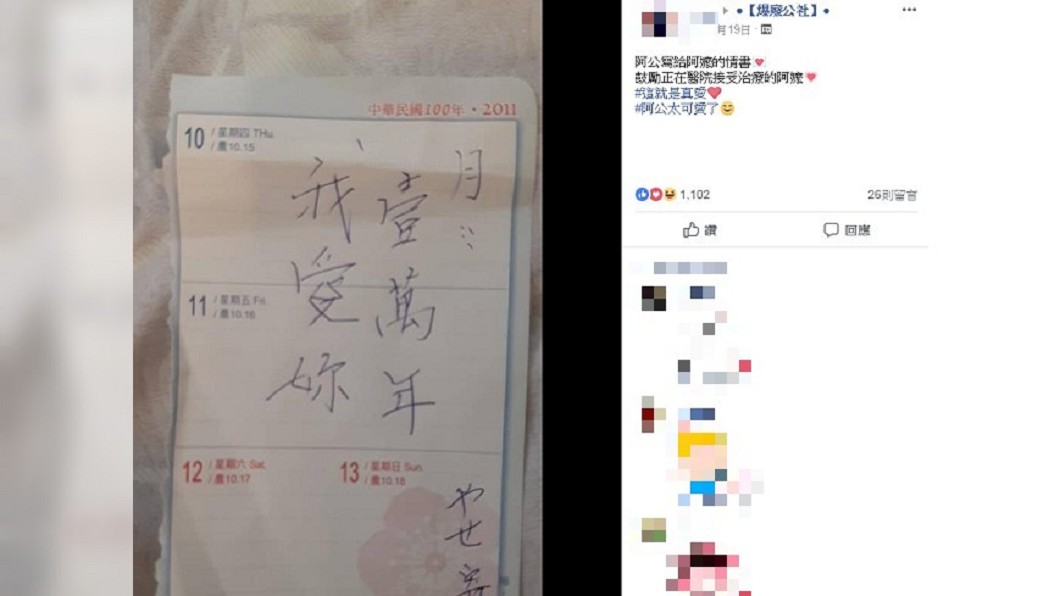 中華民國100年・2011
10 / 星期四 THu.
/ 農10.15
月
壹萬年
我愛妳
11 / 星期五 Fri.
/ 農10.16
12 / 星期六 Sat.
/ 農10.17
13 / 星期日 Sun.
/ 農10.18
やせ
•【爆廢公社】•
月19日
阿公寫給阿嬤的情書
鼓勵正在醫院接受治療的阿嬤
#這就是真愛
#阿公太可愛了
1,102
26則留言
讚
回應